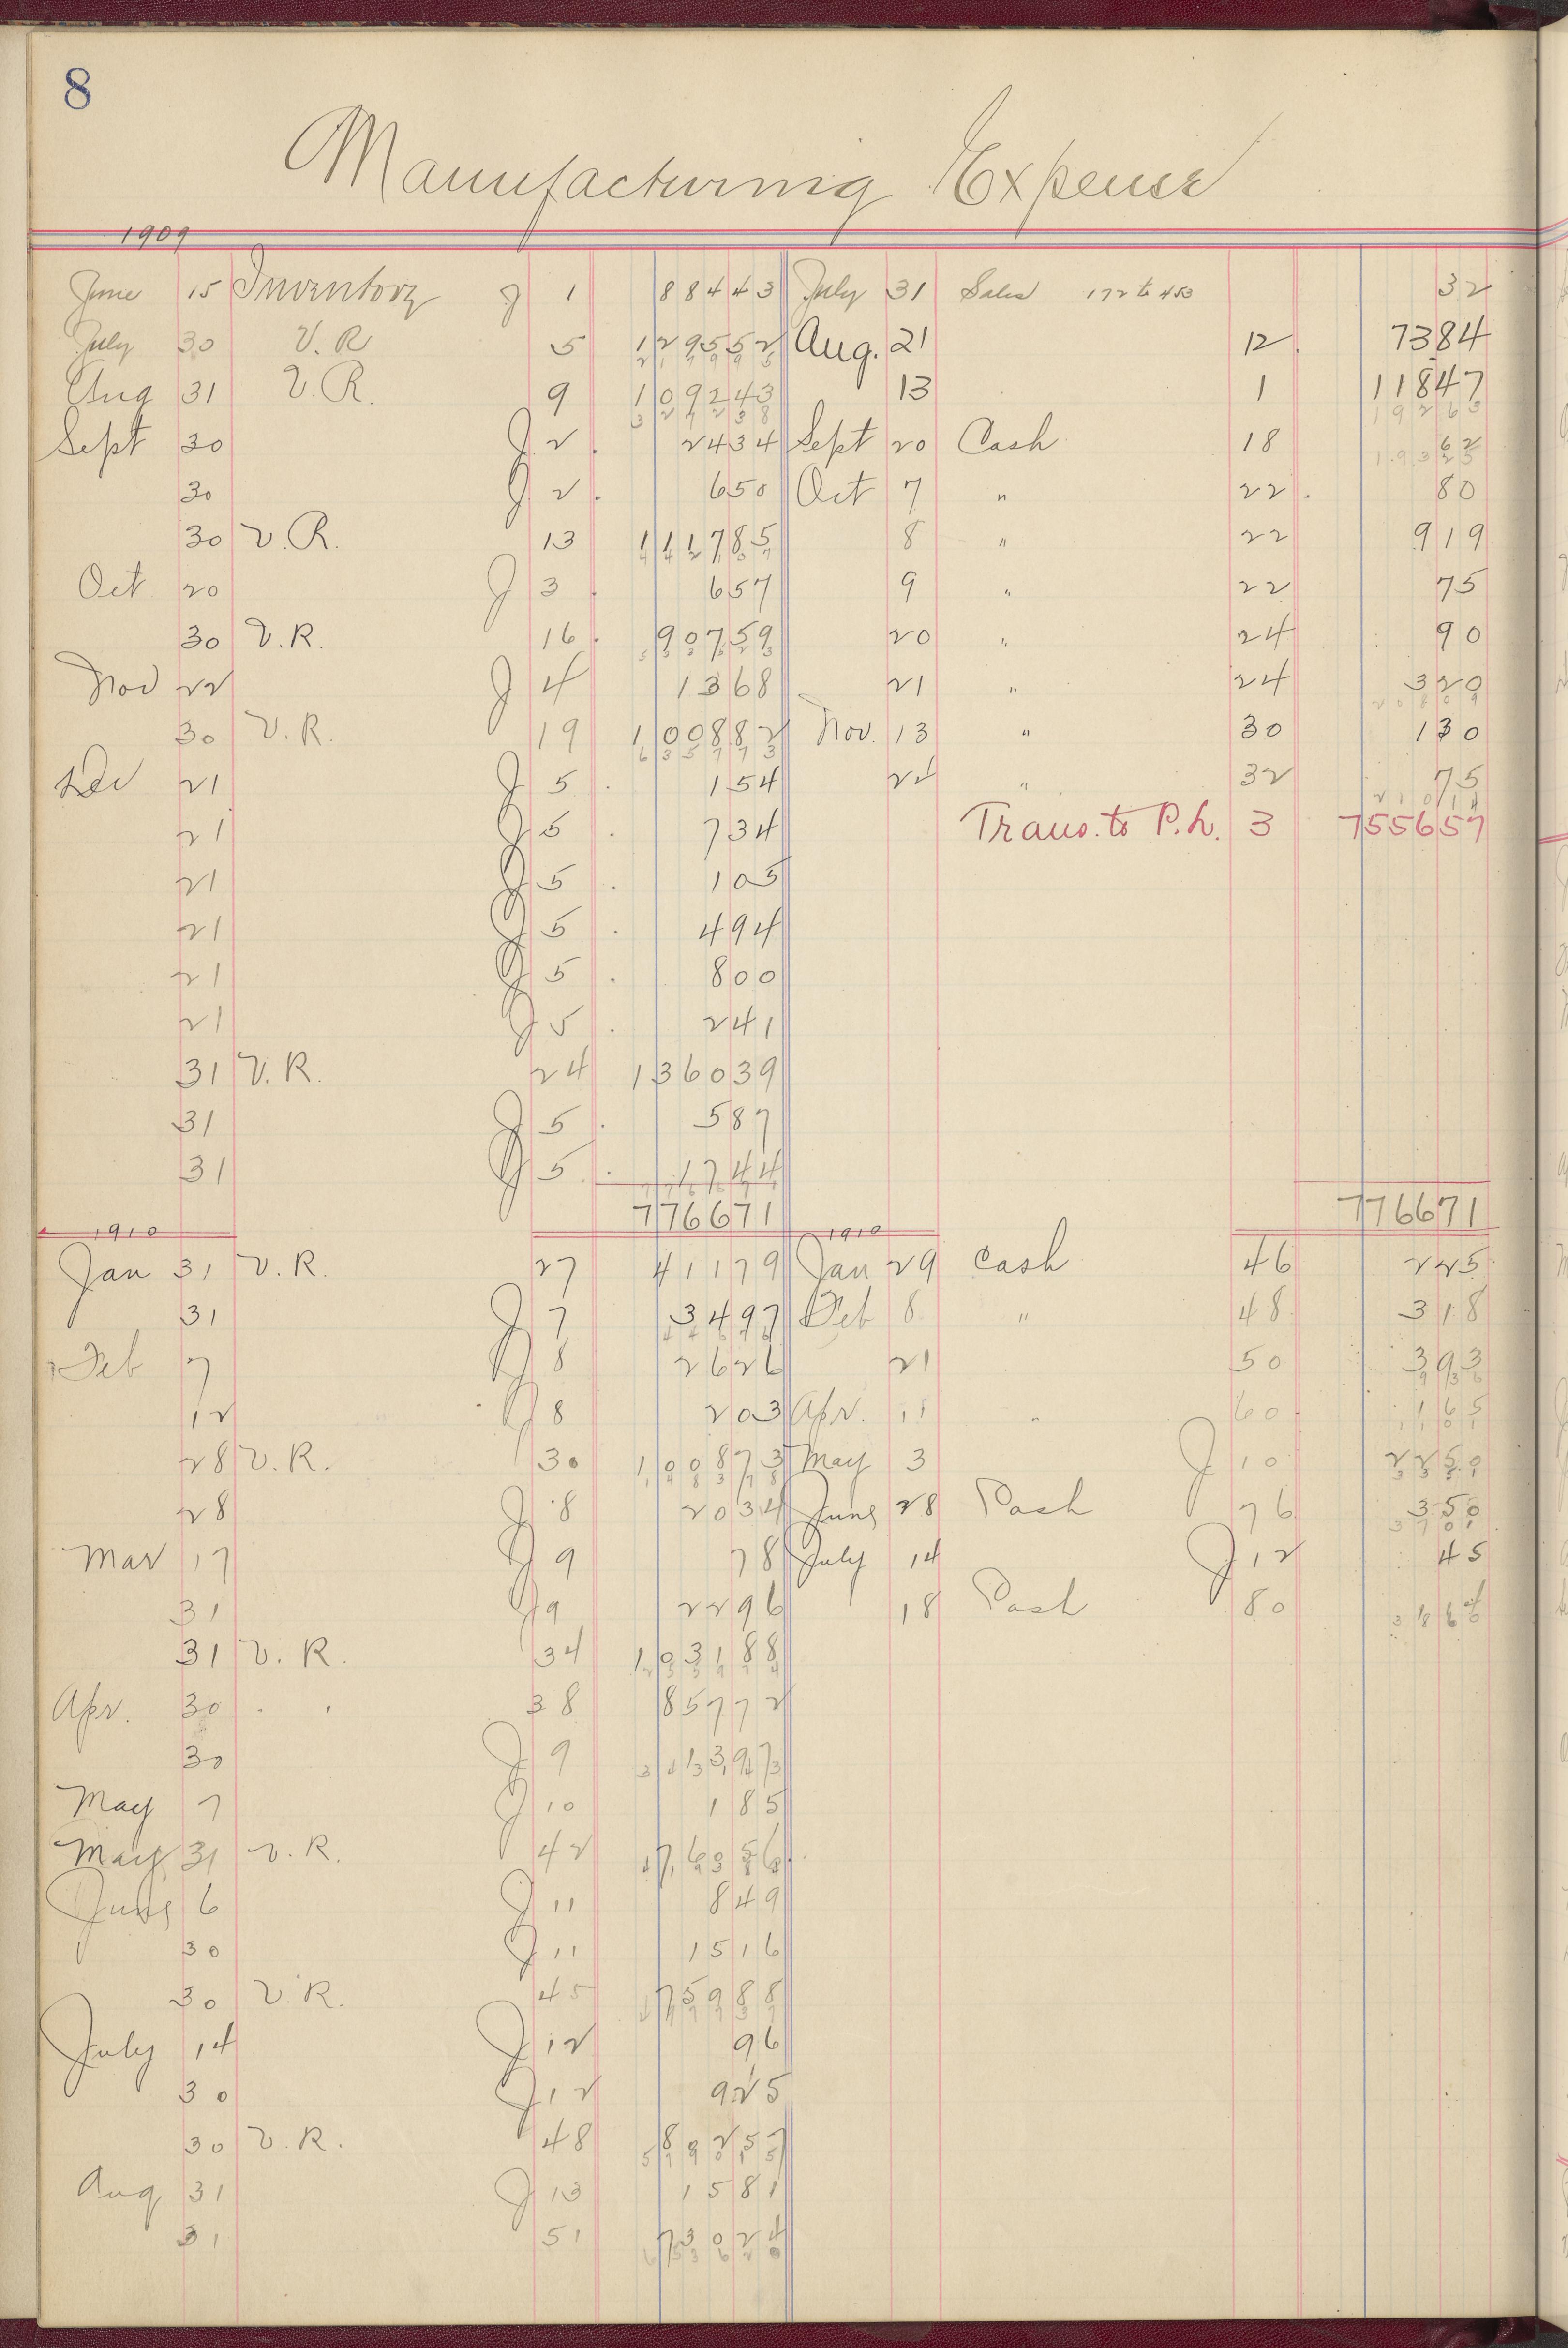 8
Manufacturing Expense
1909
June 15 Inventory J 1 88443 July 31 Sales 172 to 453 32
July 30 V. R 5 129552 Aug. 21 12. 7384
217995
Aug 31 V. R. 9 109243 13 1 11847
327238 19263
Sept 30 J 2. 2434 Sept 20 Cash 18 62
19325
30 J 2. 650 Oct 7 " 22. 80
30 V. R. 13 111785 8 " 22 919
442107
Oct 20 J 3. 657 9 " 22 75
30 V. R. 16. 90759 20 " 24 90
Nov 22 J 4 1368 21 " 24 320
20809
30 V. R. 19 100882 Nov. 13 " 30 130
635773
Dec 21 J 5. 154 22 " 32 75
21014
21 J 5. 734 Trans. to P. L. 3 755657
21 J 5. 105
21 J 5. 494
21 J 5. 800
21 J 5. 241
31 V. R. 24 136039
31 J 5. 587
31 J 5. 1744
776671 776671
1910 1910
Jan 31 V. R. 27 41179 Jan 29 Cash 46 225
31 J 7 3497 Feb 8 " 48 318
44676
Feb 7 J 8 2626 21 50 393
936
12 J 8 203 Apr. 11 " 60 165
1101
28 V. R. 30 100873 May 3 J 10 2250
148378 3351
28 J 8 2034 June 28 Cash 76 350
3701
Mar 17 J 9 78 July 14 J 12 45
31 J 9 2296 18 Cash 80
31 V. R. 34 103188
Apr. 30 " " 38 85772
30 J 9 1397
343143
May 7 J 10 185
May 31 V. R. 42 76356
June 6 J 11 849
30 J 11 1516
30 V. R. 45 75988
July 14 J 12 96
30 J 12 925
30 V. R. 48 89257
Aug 31 J 13 1581
31 51 73024